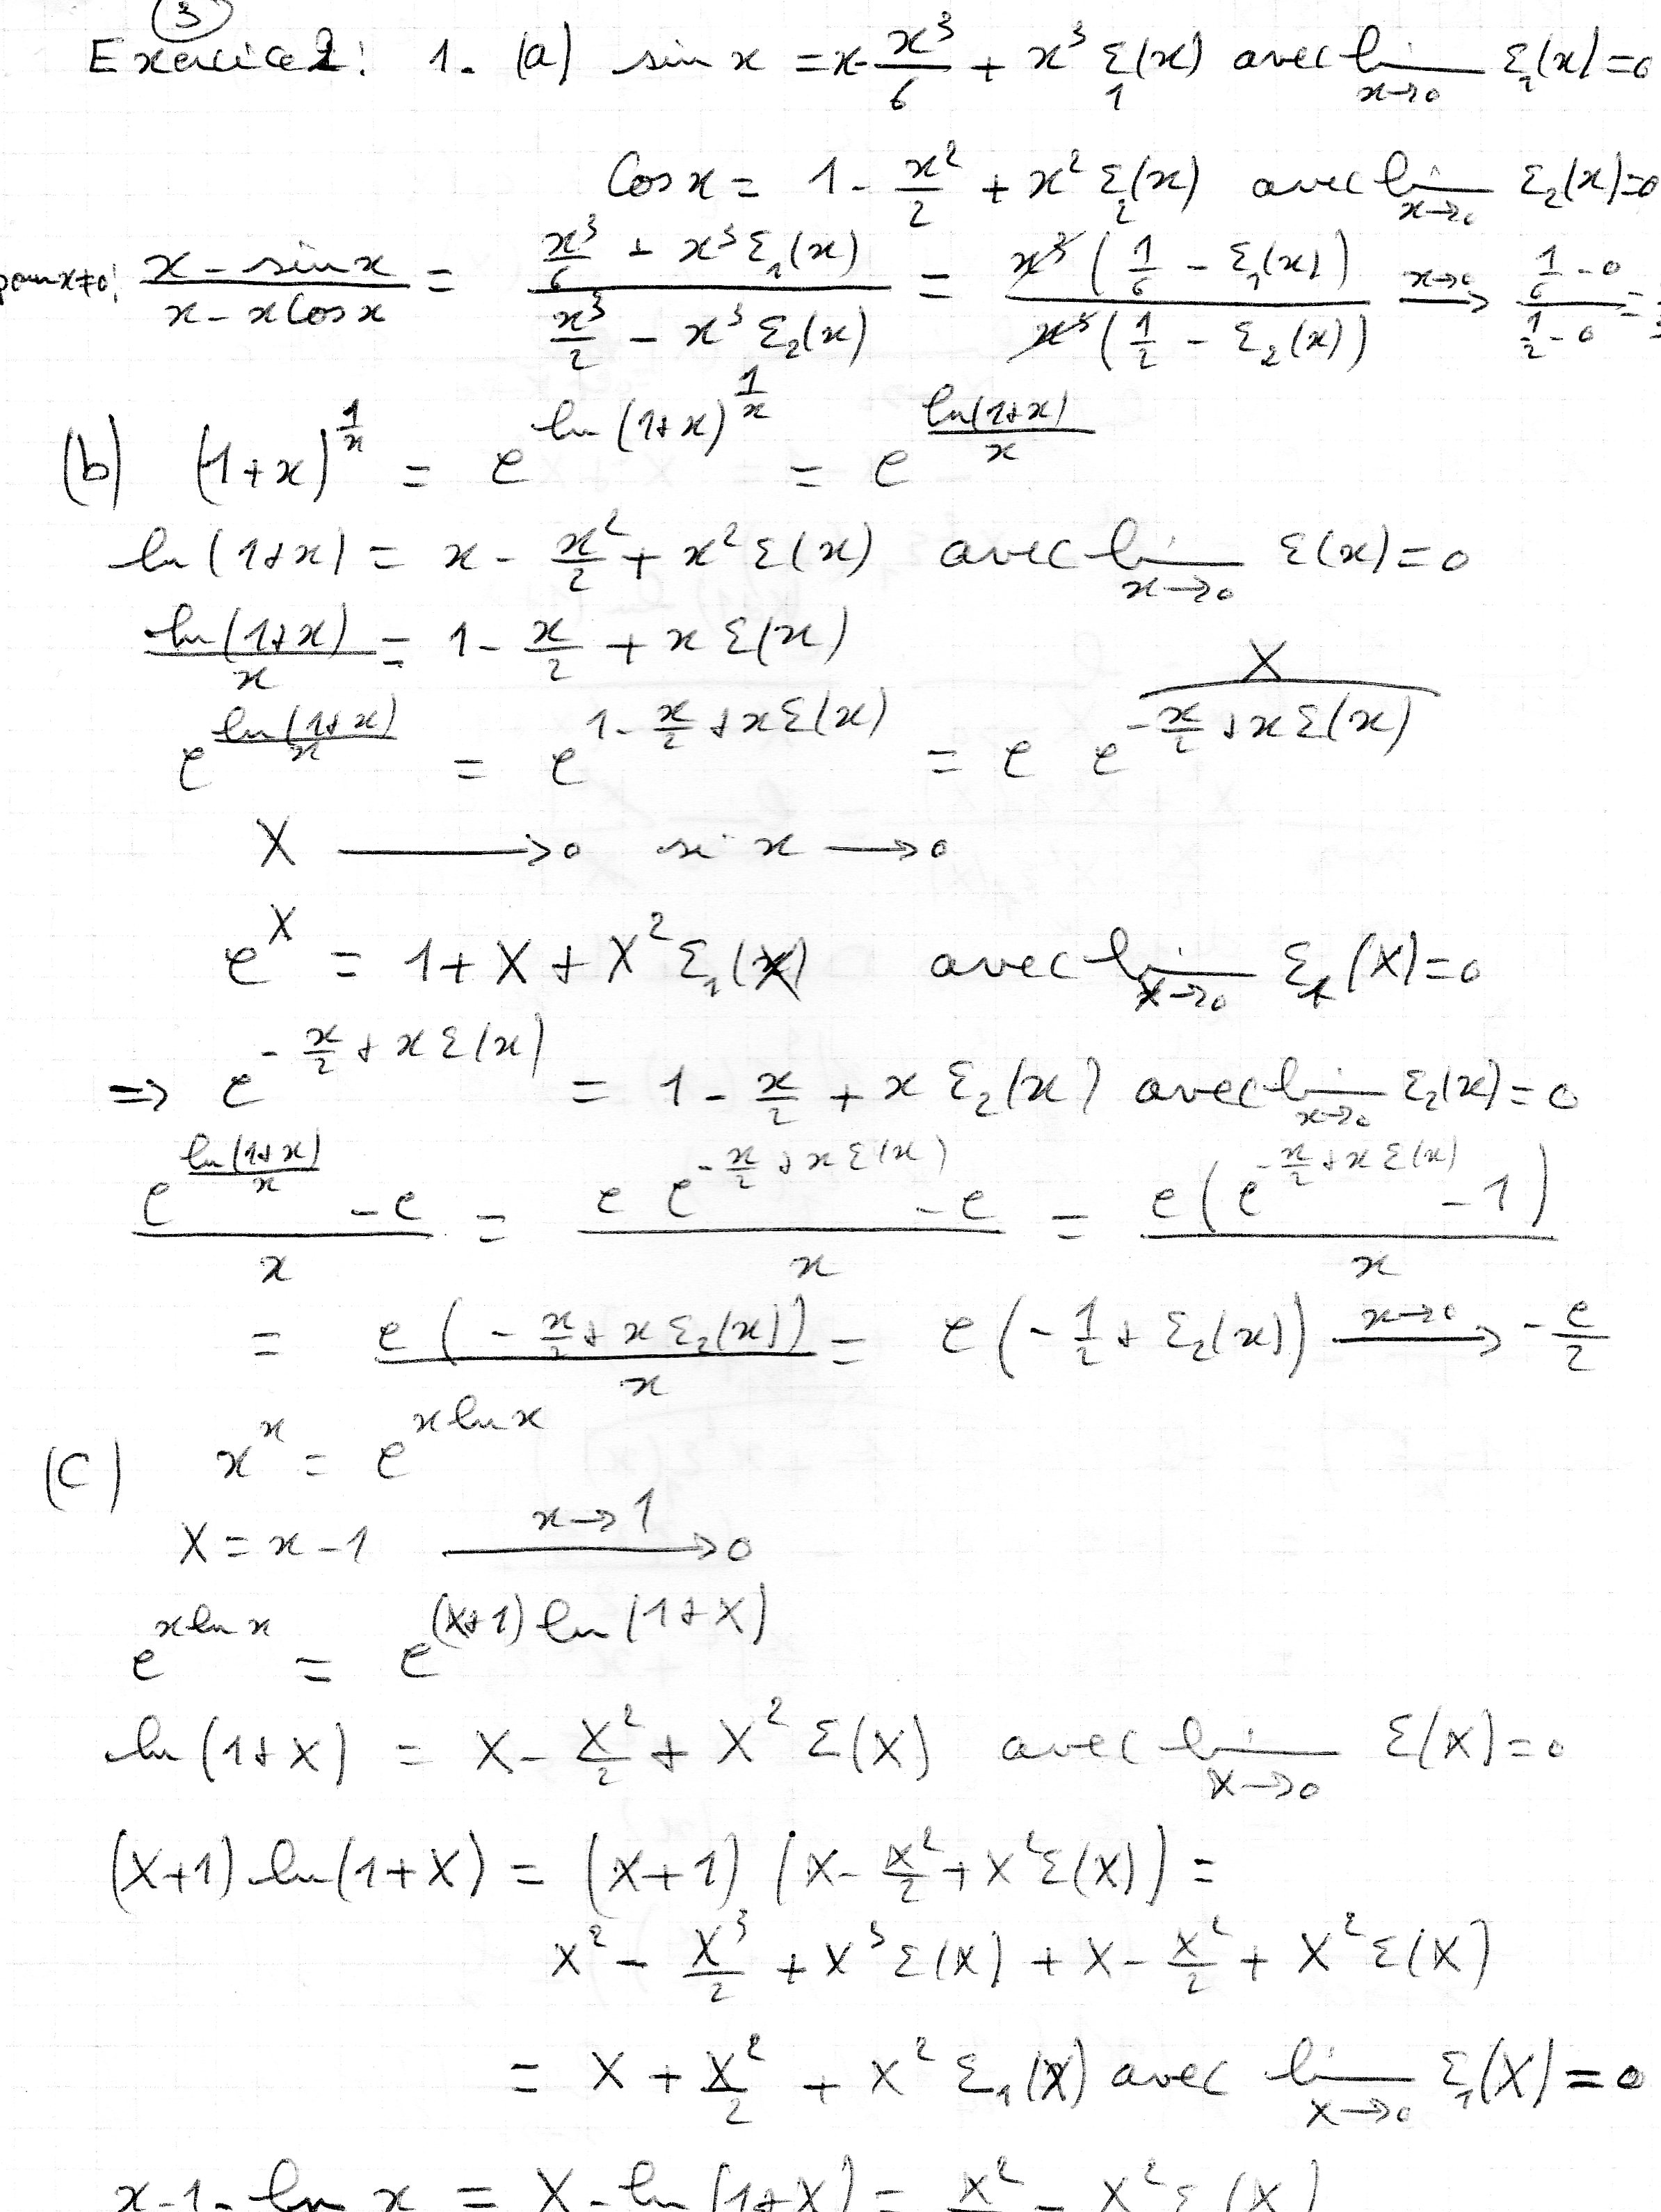 ③
Exercice 2: 1. (a) sin x = x - x³/6 + x³ ε₁(x) avec lim_{x→0} ε₁(x) = 0
Cos x = 1 - x²/2 + x² ε₂(x) avec lim_{x→0} ε₂(x) = 0
pour x≠0: (x - sin x)/(x - x Cos x) = (x³/6 + x³ ε₁(x))/(x³/2 - x³ ε₂(x)) = x³(1/6 - ε₁(x))/x³(1/2 - ε₂(x)) →^{x→0} (1/6 - 0)/(1/2 - 0) =
(b) (1+x)^{1/x} = e^{ln(1+x)^{1/x}} = e^{ln(1+x)/x}
ln(1+x) = x - x²/2 + x² ε(x) avec lim_{x→0} ε(x) = 0
ln(1+x)/x = 1 - x/2 + x ε(x)
X
e^{ln(1+x)/x} = e^{1 - x/2 + x ε(x)} = e e^{-x/2 + x ε(x)}
X → 0 si x → 0
e^X = 1 + X + X² ε₁(X) avec lim_{X→0} ε₁(X) = 0
⇒ e^{-x/2 + x ε(x)} = 1 - x/2 + x ε₂(x) avec lim_{x→0} ε₂(x) = 0
(e^{ln(1+x)/x} - e)/x = (e e^{-x/2 + x ε(x)} - e)/x = e(e^{-x/2 + x ε(x)} - 1)/x
= e(-x/2 + x ε₂(x))/x = e(-1/2 + ε₂(x)) →^{x→0} -e/2
(c) x^x = e^{x ln x}
X = x - 1 →^{x→1} 0
e^{x ln x} = e^{(X+1) ln(1+X)}
ln(1+X) = X - X²/2 + X² ε(X) avec lim_{X→0} ε(X) = 0
(X+1) ln(1+X) = (X+1)(X - X²/2 + X² ε(X)) =
X² - X³/2 + X³ ε(X) + X - X²/2 + X² ε(X)
= X + X²/2 + X² ε₁(X) avec lim_{X→0} ε₁(X) = 0
x - 1 - ln x = X - ln(1+X) = X² - X² ε(X)